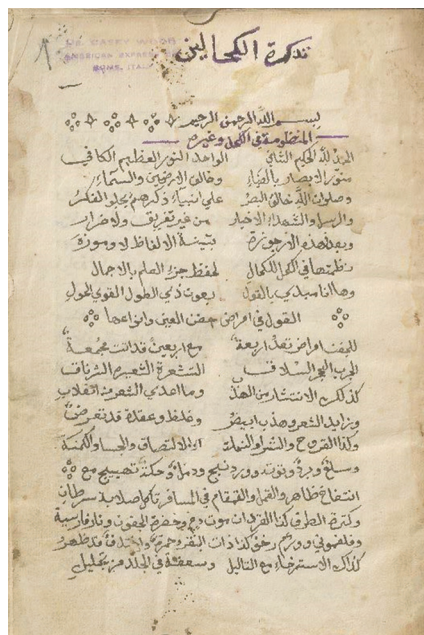 تذكرة الكحالين
DR. CASEY WOOD
AMERICAN EXPRESS
ROME, ITALY
بسم الله الرحمن الرحيم
المنظومة في الكحل وغيره
الحمد لله الحكيم الشافي الواحد النور العظيم الكافي
منور الابصار بالضياء وخالق الارضين والسماء
وصلوات الله خالق البصر على انبياء ذكرهم يجلو الفكر
والرسل والشهداء الاخيار من غير تفريق ولا ضرار
وبعد هذه الارجوزة بتينة الالفاظ لا
نظمتها في الكحل للكمال لحفظ جزء العلم بالاجمال
وها انا مبتدي بالقول بعون ذي الطول القوي الحول
القول في امراض جفن العين وانواعها
للجفن امراض تعد اربعة مع اربعين قد اتت مجمعة
الجرب البرد السلاق الشترة الشعيرة الشرناق
كذلك الانتشار من الهدب وما اعدي الشعر من انقلاب
وزايد الشعر وهدب ابيض وغلظ وعقدة قد تعرض
وكذا القروح والشرا والنملة الالتصاق والجسا والكمنة
وسلع وتوتة وورد ينج ودمل وحكة تهييج مع
انتفاخ ظاهر والقمل والقمقام في المسافر تاكل صلابة سرطان
وكثرة الطرف كذا القردان موت دم وخضرة الجفون ونار فارسية
وفلغموني وورم رخو كذا ذات البقر وحمرة قد تظهر
كذلك الاسترخاء مع الثاليل وسعفة في الجلد من تحليل